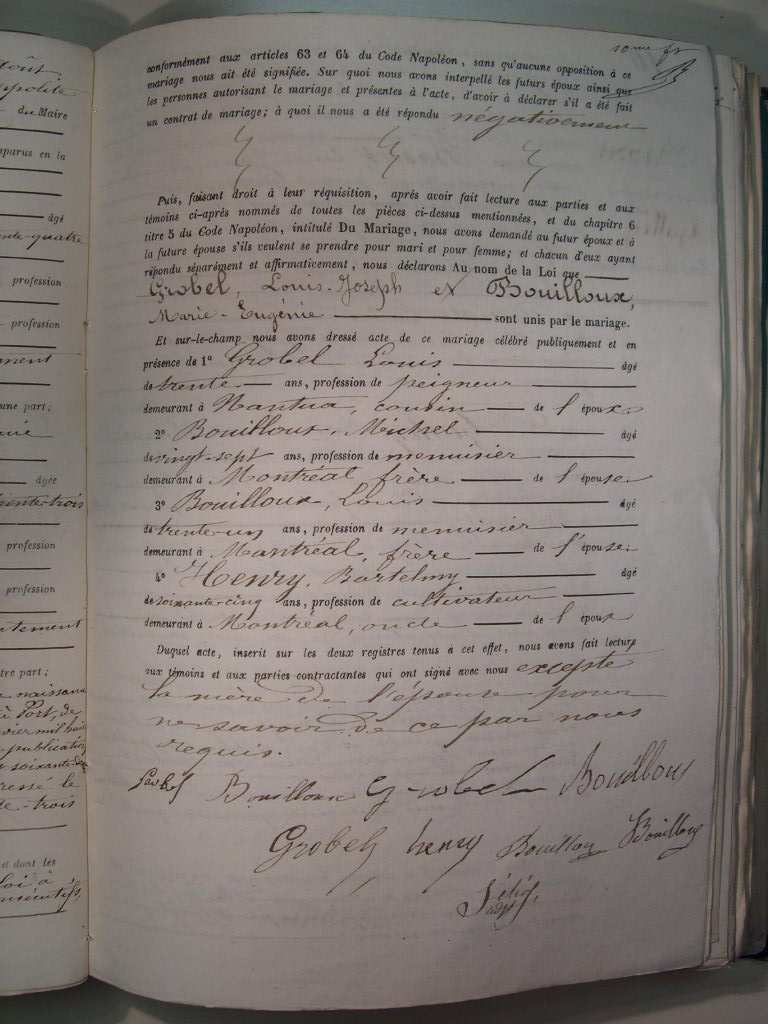 10me ft
conformément aux articles 63 et 64 du Code Napoléon, sans qu'aucune opposition à ce
mariage nous ait été signifiée. Sur quoi nous avons interpellé les futurs époux ainsi que
les personnes autorisant le mariage et présentes à l'acte, d'avoir à déclarer s'il a été fait
un contrat de mariage; à quoi il nous a été répondu négativement
Puis, faisant droit à leur réquisition, après avoir fait lecture aux parties et aux
témoins ci-après nommés de toutes les pièces ci-dessus mentionnées, et du chapitre 6
titre 5 du Code Napoléon, intitulé Du Mariage, nous avons demandé au futur époux et à
la future épouse s'ils veulent se prendre pour mari et pour femme; et chacun d'eux ayant
répondu séparément et affirmativement, nous déclarons Au nom de la Loi que
Grobel, Louis-Joseph et Bouilloux,
Marie-Eugénie sont unis par le mariage.
Et sur-le-champ nous avons dressé acte de ce mariage célébré publiquement et en
présence de 1° Grobel Louis âgé
de trente ans, profession de peigneur
demeurant à Nantua, cousin de l'époux
2° Bouilloux, Michel âgé
de vingt-sept ans, profession de menuisier
demeurant à Montréal frère de l'épouse
3° Bouilloux, Louis âgé
de trente-un ans, profession de menuisier
demeurant à Montréal, frère de l'épouse
4° Henry, Bartelmy âgé
de soixante-cinq ans, profession de cultivateur
demeurant à Montréal, oncle de l'époux
Duquel acte, inscrit sur les deux registres tenus à cet effet, nous avons fait lecture
aux témoins et aux parties contractantes qui ont signé avec nous excepté
la mère de l'épouse pour
ne savoir de ce par nous
requis.
Bouilloux Grobel Bouilloux
Grobel henry Bouilloux Bouilloux
août
du Maire
comparus en la
âgé
trente-quatre
profession
profession
d'une part;
âgée
trente-trois
profession
profession
autre part;
naissance
à Port, de
publication
soixante-deux
dressé le
trois
et dont les
loi à
consécutifs